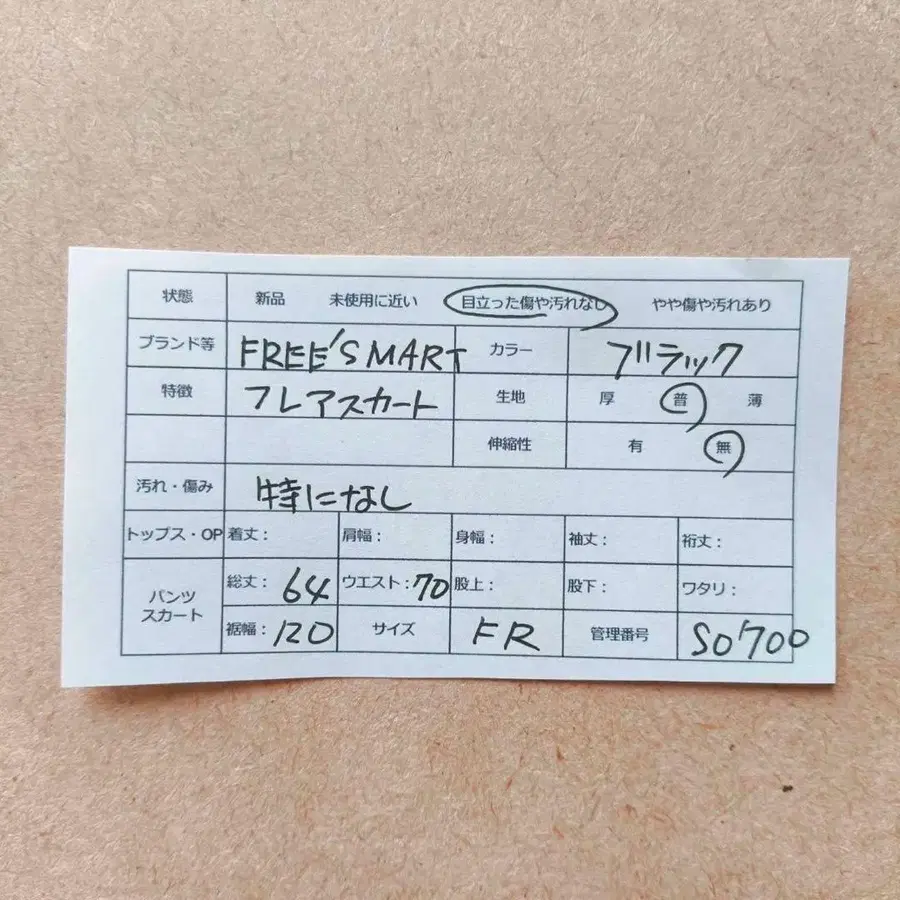 状態 新品 未使用に近い 目立った傷や汚れなし やや傷や汚れあり
ブランド等 FREE'SMART カラー ブラック
特徴 フレアスカート 生地 厚 普 薄
伸縮性 有 無
汚れ・傷み 特になし
トップス・OP 着丈: 肩幅: 身幅: 袖丈: 裄丈:
パンツ スカート 総丈: 64 ウエスト: 70 股上: 股下: ワタリ:
裾幅: 120 サイズ FR 管理番号 SO'700